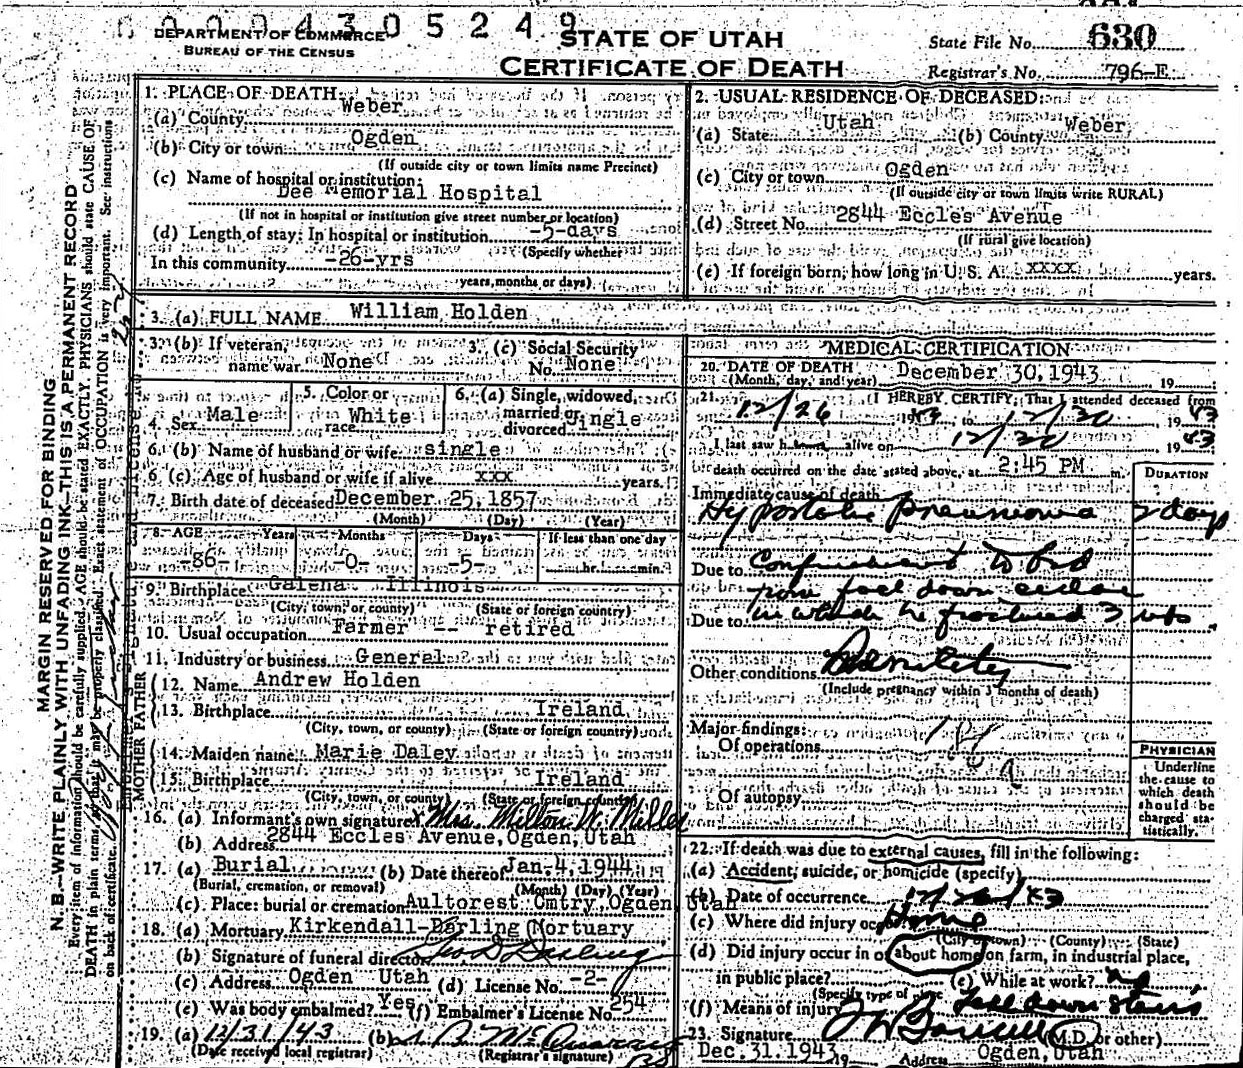 0 0 0 4 3 0 5 2 4 9
DEPARTMENT OF COMMERCE
BUREAU OF THE CENSUS
STATE OF UTAH
CERTIFICATE OF DEATH
State File No. 630
Registrar's No. 796-E
MARGIN RESERVED FOR BINDING
N. B.—WRITE PLAINLY WITH UNFADING INK—THIS IS A PERMANENT RECORD
Every item of information should be carefully supplied. AGE should be stated EXACTLY. PHYSICIANS should state CAUSE OF
DEATH in plain terms, so that it may be properly classified. Exact statement of OCCUPATION is very important. See instructions
on back of certificate.
1. PLACE OF DEATH:
(a) County Weber
(b) City or town Ogden
(If outside city or town limits name Precinct)
(c) Name of hospital or institution:
Dee Memorial Hospital
(If not in hospital or institution give street number or location)
(d) Length of stay: In hospital or institution -5-days
(Specify whether
In this community -26-yrs
years, months or days)
2. USUAL RESIDENCE OF DECEASED:
(a) State Utah (b) County Weber
(c) City or town Ogden
(If outside city or town limits write RURAL)
(d) Street No. 2844 Eccles Avenue
(If rural give location)
(e) If foreign born, how long in U. S. A. xxxx years.
3. (a) FULL NAME William Holden
3. (b) If veteran, name war None
3. (c) Social Security No. None
4. Sex Male
5. Color or race White
6. (a) Single, widowed, married or divorced Single
6. (b) Name of husband or wife single
6. (c) Age of husband or wife if alive xxx years.
7. Birth date of deceased December 25, 1857
(Month) (Day) (Year)
8. AGE Years Months Days If less than one day
-86- -0- -5- hr. min.
9. Birthplace Galena Illinois
(City, town, or county) (State or foreign country)
10. Usual occupation Farmer -- retired
11. Industry or business General
FATHER
12. Name Andrew Holden
13. Birthplace Ireland
(City, town, or county) (State or foreign country)
MOTHER
14. Maiden name Marie Daley
15. Birthplace Ireland
(City, town, or county) (State or foreign country)
16. (a) Informant's own signature Mrs. Milton W. Miller
(b) Address 2844 Eccles Avenue, Ogden, Utah
17. (a) Burial (b) Date thereof Jan. 4, 1944
(Burial, cremation, or removal) (Month) (Day) (Year)
(c) Place: burial or cremation Aultorest Cmtry, Ogden Utah
18. (a) Mortuary Kirkendall-Darling Mortuary
(b) Signature of funeral director Geo D Darling
(c) Address Ogden Utah (d) License No. -2-
(e) Was body embalmed? Yes (f) Embalmer's License No. 254
19. (a) 12/31/43 (b)
(Date received local registrar) (Registrar's signature)
MEDICAL CERTIFICATION
20. DATE OF DEATH December 30, 1943 19
(Month, day, and year)
21. I HEREBY CERTIFY, That I attended deceased from
12/26 1943 to 12/30 1943
I last saw h alive on 12/30 1943
death occurred on the date stated above, at 2:45 PM m.
DURATION
Immediate cause of death
Hypostatic pneumonia 2 days
Due to Confinement to bed
from fall down
Due to in which he fractured 3 ribs.
Other conditions
(Include pregnancy within 3 months of death)
Major findings:
Of operations
Of autopsy
PHYSICIAN
Underline
the cause to
which death
should be
charged sta-
tistically.
22. If death was due to external causes, fill in the following:
(a) Accident, suicide, or homicide (specify)
(b) Date of occurrence 12/26/43
(c) Where did injury occur Home
(City or town) (County) (State)
(d) Did injury occur in or about home, on farm, in industrial place,
in public place? (e) While at work? no
(Specify type of place)
(f) Means of injury Fell down stairs
23. Signature (M.D. or other)
Dec. 31. 1943 19 Address Ogden, Utah